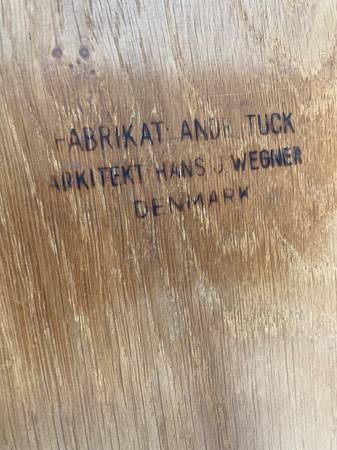 FABRIKAT: ANDR. TUCK
ARKITEKT HANS J WEGNER
DENMARK